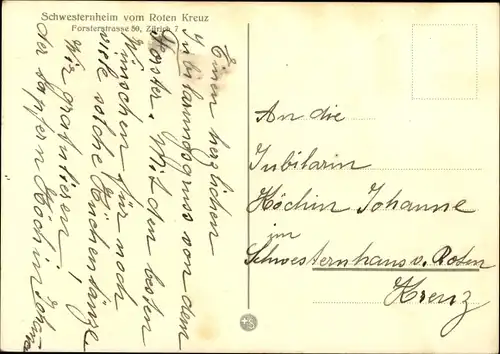 Schwesternheim vom Roten Kreuz
Forsterstrasse 50, Zürich 7
Einen herzlichen
Jubiläumsgruss von dem
Forster. Mit den besten
Wünschen für noch
viele solche Küchentänze
Wir gratulieren!
der tapfern Köchin Johanna
An die
Jubilarin
Köchin Johanne
im
Schwesternhaus v. Roten
Kreuz